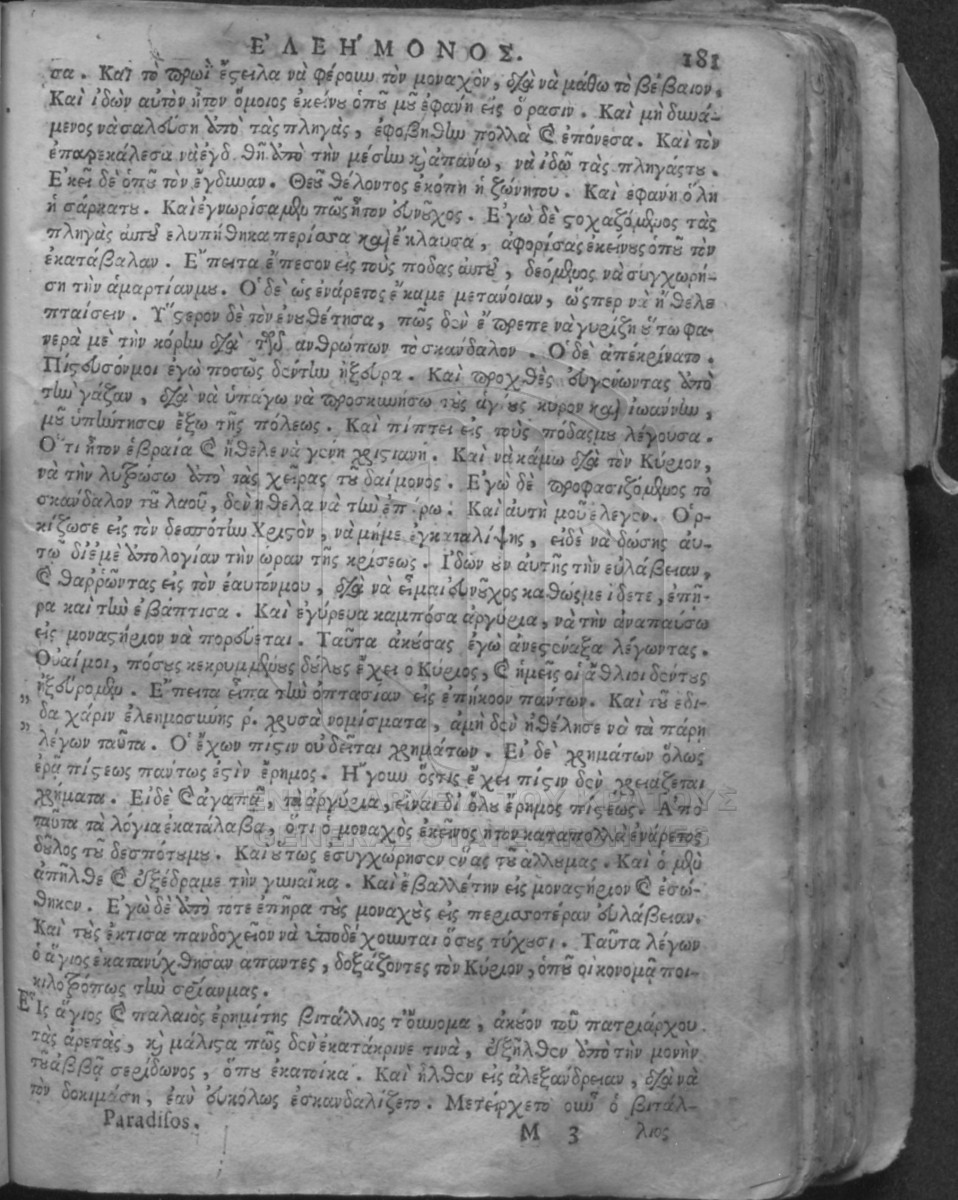 ἘΛΕΉΜΟΝΟΣ. 181
σα. Καὶ τὸ πρωῒ ἔστειλα νὰ φέρουν τὸν μοναχὸν, διὰ νὰ μάθω τὸ βέβαιον,
Καὶ ἰδὼν αὐτὸν ἦτον ὅμοιος ἐκείνου ὁποῦ μοῦ ἐφάνη εἰς ὅρασιν. Καὶ μὴ δυνά-
μενος νὰ σαλεύση ἀπὸ τὰς πληγὰς, ἐφοβήθην πολλὰ καὶ ἐπόνεσα. Καὶ τὸν
ἐπαρεκάλεσα νὰ ἐγδυθῆ ἀπὸ τὴν μέσην καὶ ἀπάνω, νὰ ἰδῶ τὰς πληγάς του.
Ἐκεῖ δὲ ὁποῦ τὸν ἔγδυναν. Θεοῦ θέλοντος ἐκόπη ἡ ζώνη του. Καὶ ἐφάνη ὅλη
ἡ σάρκα του. Καὶ ἐγνωρίσαμεν πῶς ἦτον εὐνοῦχος. Ἐγὼ δὲ στοχαζόμενος τὰς
πληγὰς αὐτοῦ ἐλυπήθηκα περίσσα καὶ ἔκλαυσα, ἀφορίσας ἐκείνους ὁποῦ τὸν
ἐκατάβαλαν. Ἔπειτα ἔπεσον εἰς τοὺς πόδας αὐτοῦ, δεόμενος νὰ συγχωρή-
ση τὴν ἁμαρτίαν μου. Ὁ δὲ ὡς ἐνάρετος ἔκαμε μετάνοιαν, ὥσπερ νὰ ἤθελε
πταίσειν. Ὕστερον δὲ τὸν ἐνουθέτησα, πῶς δὲν ἔπρεπε νὰ γυρίζη οὕτω φα-
νερὰ μὲ τὴν κόρην διὰ τῶν ἀνθρώπων τὸ σκάνδαλον. Ὁ δὲ ἀπεκρίνατο.
Πίστευσόν μοι ἐγὼ ποσῶς δὲν τὴν ἤξευρα. Καὶ προχθὲς εὐγενώντας ἀπὸ
τὴν γάζαν, διὰ νὰ ὑπάγω νὰ προσκυνήσω τοὺς ἁγίους κυρον καὶ ἰωάννην,
μοῦ ὑπήντησεν ἔξω τῆς πόλεως. Καὶ πίπτει εἰς τοὺς πόδας μου λέγουσα.
Ὅτι ἦτον ἑβραία καὶ ἤθελε νὰ γένη χριστιανή. Καὶ νὰ κάμω διὰ τὸν Κύριον,
νὰ τὴν λυτρώσω ἀπὸ τὰς χεῖρας τοῦ δαίμονος. Ἐγὼ δὲ προφασιζόμενος τὸ
σκάνδαλον τοῦ λαοῦ, δὲν ἤθελα νὰ τὴν ἐπάρω. Καὶ αὐτὴ μοῦ ἔλεγεν. Ὁρ-
κίζω σε εἰς τὸν δεσπότην Χριστὸν, νὰ μή με ἐγκαταλίψης, εἰδὲ νὰ δώσης αὐ-
τῷ δι' ἐμὲ ἀπολογίαν τὴν ὥραν τῆς κρίσεως. Ἰδὼν οὖν αὐτῆς τὴν εὐλάβειαν,
καὶ θαρρῶντας εἰς τὸν ἑαυτόν μου, διὰ νὰ εἶμαι εὐνοῦχος καθώς με ἴδετε, ἐπῆ-
ρα καὶ τὴν ἐβάπτισα. Καὶ ἐγύρευα καμπόσα ἀργύρια, νὰ τὴν ἀναπαύσω
εἰς μοναστήριον νὰ πορεύεται. Ταῦτα ἀκούσας ἐγὼ ἀνεστέναξα λέγωντας.
Οὐαί μοι, πόσους κεκρυμμένους δούλους ἔχει ὁ Κύριος, καὶ ἡμεῖς οἱ ἄθλιοι δὲν τοὺς
„ ἠξεύρομεν. Ἔπειτα εἶπα τὴν ὀπτασίαν εἰς ἐπήκοον πάντων. Καὶ τοῦ ἔδι-
„ δα χάριν ἐλεημοσύνης ρ. χρυσὰ νομίσματα, ἀμὴ δὲν ἠθέλησε νὰ τὰ πάρη
λέγων ταῦτα. Ὁ ἔχων πίστιν οὐ δεῖται χρημάτων. Εἰ δὲ χρημάτων ὅλως
ἐρᾷ πίστεως πάντως ἐστὶν ἔρημος. Ἤγουν ὅστις ἔχει πίστιν δὲν χρειάζεται
χρήματα. Εἰδὲ καὶ ἀγαπᾷ, τὰ ἀργύρια, εἶναι δι' ὅλου ἔρημος πίστεως. Ἀπὸ
ταῦτα τὰ λόγια ἐκατάλαβα, ὅτι ὁ μοναχὸς ἐκεῖνος ἦτον καταπολλὰ ἐνάρετος
δοῦλος τοῦ δεσπότου μου. Καὶ οὕτως ἐσυγχώρησεν ἕνας τοῦ ἄλλου μας. Καὶ ὁ μὲν
ἀπῆλθε καὶ ἐξέδραμε τὴν γυναῖκα. Καὶ ἔβαλλέ την εἰς μοναστήριον καὶ ἐσώ-
θηκεν. Ἐγὼ δὲ ἀπὸ τότε ἐπῆρα τοὺς μοναχοὺς εἰς περισσοτέραν εὐλάβειαν.
Καὶ τοὺς ἔκτισα πανδοχεῖον νὰ ὑποδέχουνται ὅσους τύχουσι. Ταῦτα λέγων
ὁ ἅγιος ἐκατανύχθησαν ἅπαντες, δοξάζοντες τὸν Κύριον, ὁποῦ οἰκονομᾷ ποι-
κιλοτρόπως τὴν σωτηρίαν μας.
Εἷς ἅγιος καὶ παλαιὸς ἐρημίτης βιτάλλιος τοὔνομα, ἀκούων τοῦ πατριάρχου
τὰς ἀρετὰς, καὶ μάλιστα πῶς δὲν ἐκατάκρινε τινὰ, ἐξῆλθεν ἀπὸ τὴν μονὴν
τοῦ ἀββᾶ σερίδωνος, ὅπου ἐκατοίκα. Καὶ ἦλθεν εἰς ἀλεξάνδρειαν, διὰ νὰ
τὸν δοκιμάση, ἐὰν εὐκόλως ἐσκανδαλίζετο. Μετείρχετο οὖν ὁ βιτάλ-
Paradisos. M 3 λιος